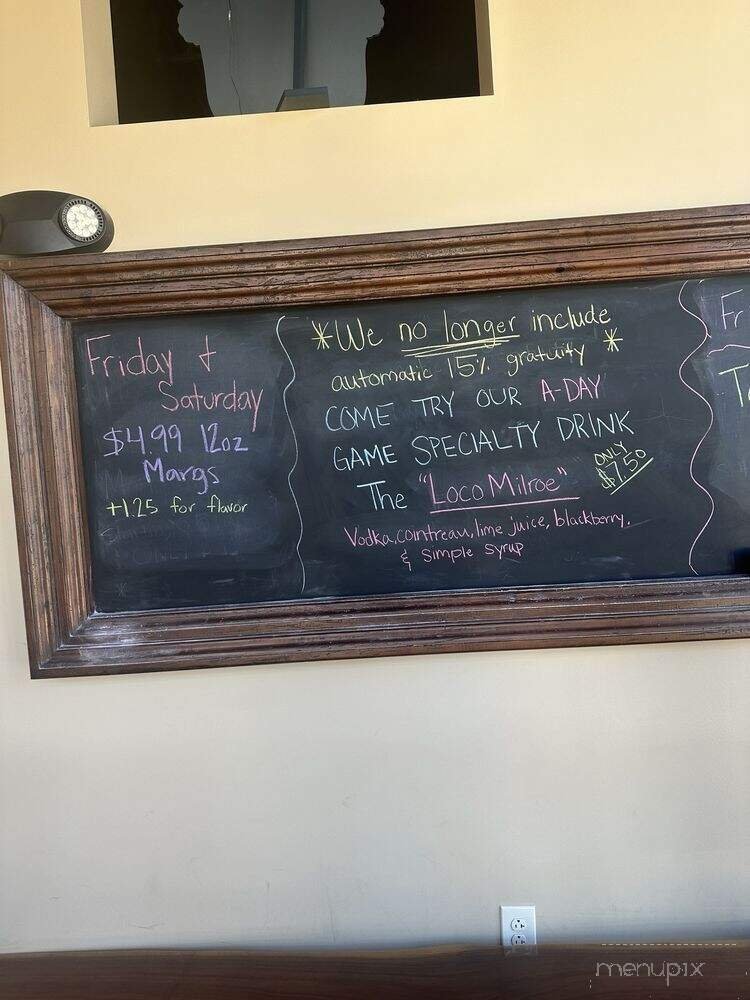 Friday +
Saturday
$4.99 12oz
Margs
+1.25 for flavor
*We no longer include
automatic 15% gratuity *
COME TRY OUR A-DAY
GAME SPECIALTY DRINK
The "Loco Milroe"
ONLY
$7.50
Vodka, cointreau, lime juice, blackberry,
& Simple Syrup
Fr
menupix